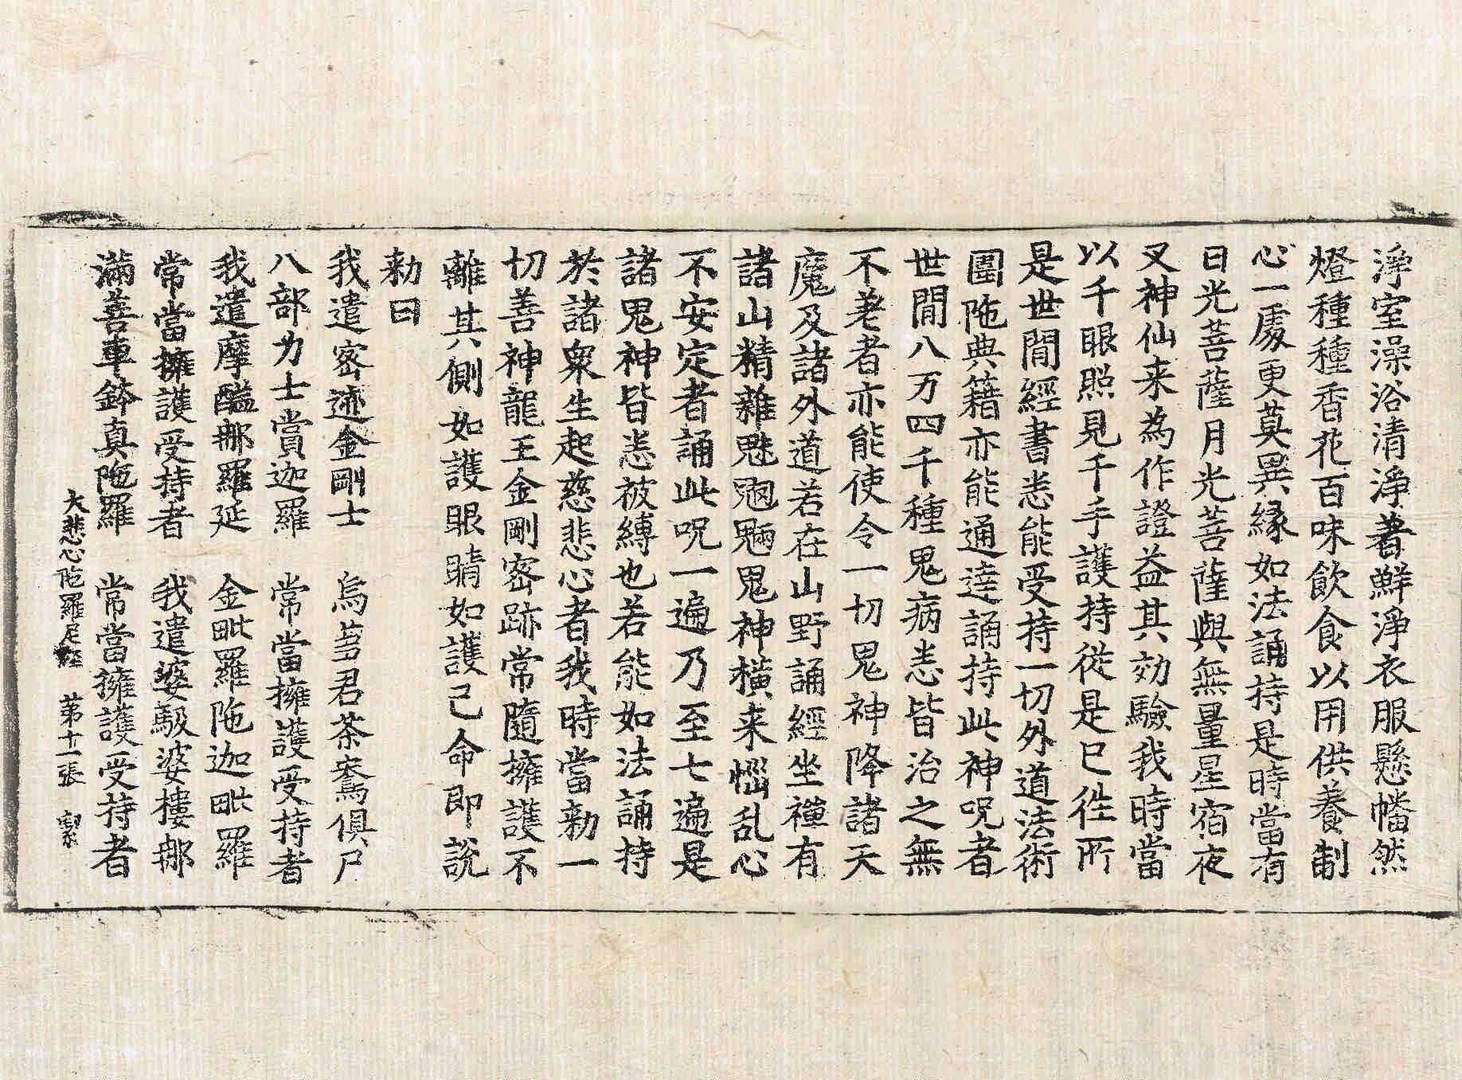 淨室澡浴清淨著鮮淨衣服懸幡然
燈種種香花百味飲食以用供養制
心一處更莫異緣如法誦持是時當有
日光菩薩月光菩薩與無量星宿夜
叉神仙来為作證益其効驗我時當
以千眼照見千手護持從是已徃所
是世間經書悉能受持一切外道法術
圍陁典籍亦能通達誦持此神呪者
世間八万四千種鬼病悉皆治之無
不差者亦能使令一切鬼神降諸天
魔及諸外道若在山野誦經坐禪有
諸山精雜魅魍魎鬼神横来惱乱心
不安定者誦此呪一遍乃至七遍是
諸鬼神皆悉被縛也若能如法誦持
於諸衆生起慈悲心者我時當勑一
切善神龍王金剛密跡常隨擁護不
離其側如護眼睛如護己命即說
勑曰
我遣密迹金剛士　烏芻君荼鴦俱尸
八部力士賞迦羅　常當擁護受持者
我遣摩醯那羅延　金毗羅陁迦毗羅
常當擁護受持者　我遣婆馺婆樓那
滿善車鉢真陁羅　常當擁護受持者
大悲心陁羅尼経　第十一張